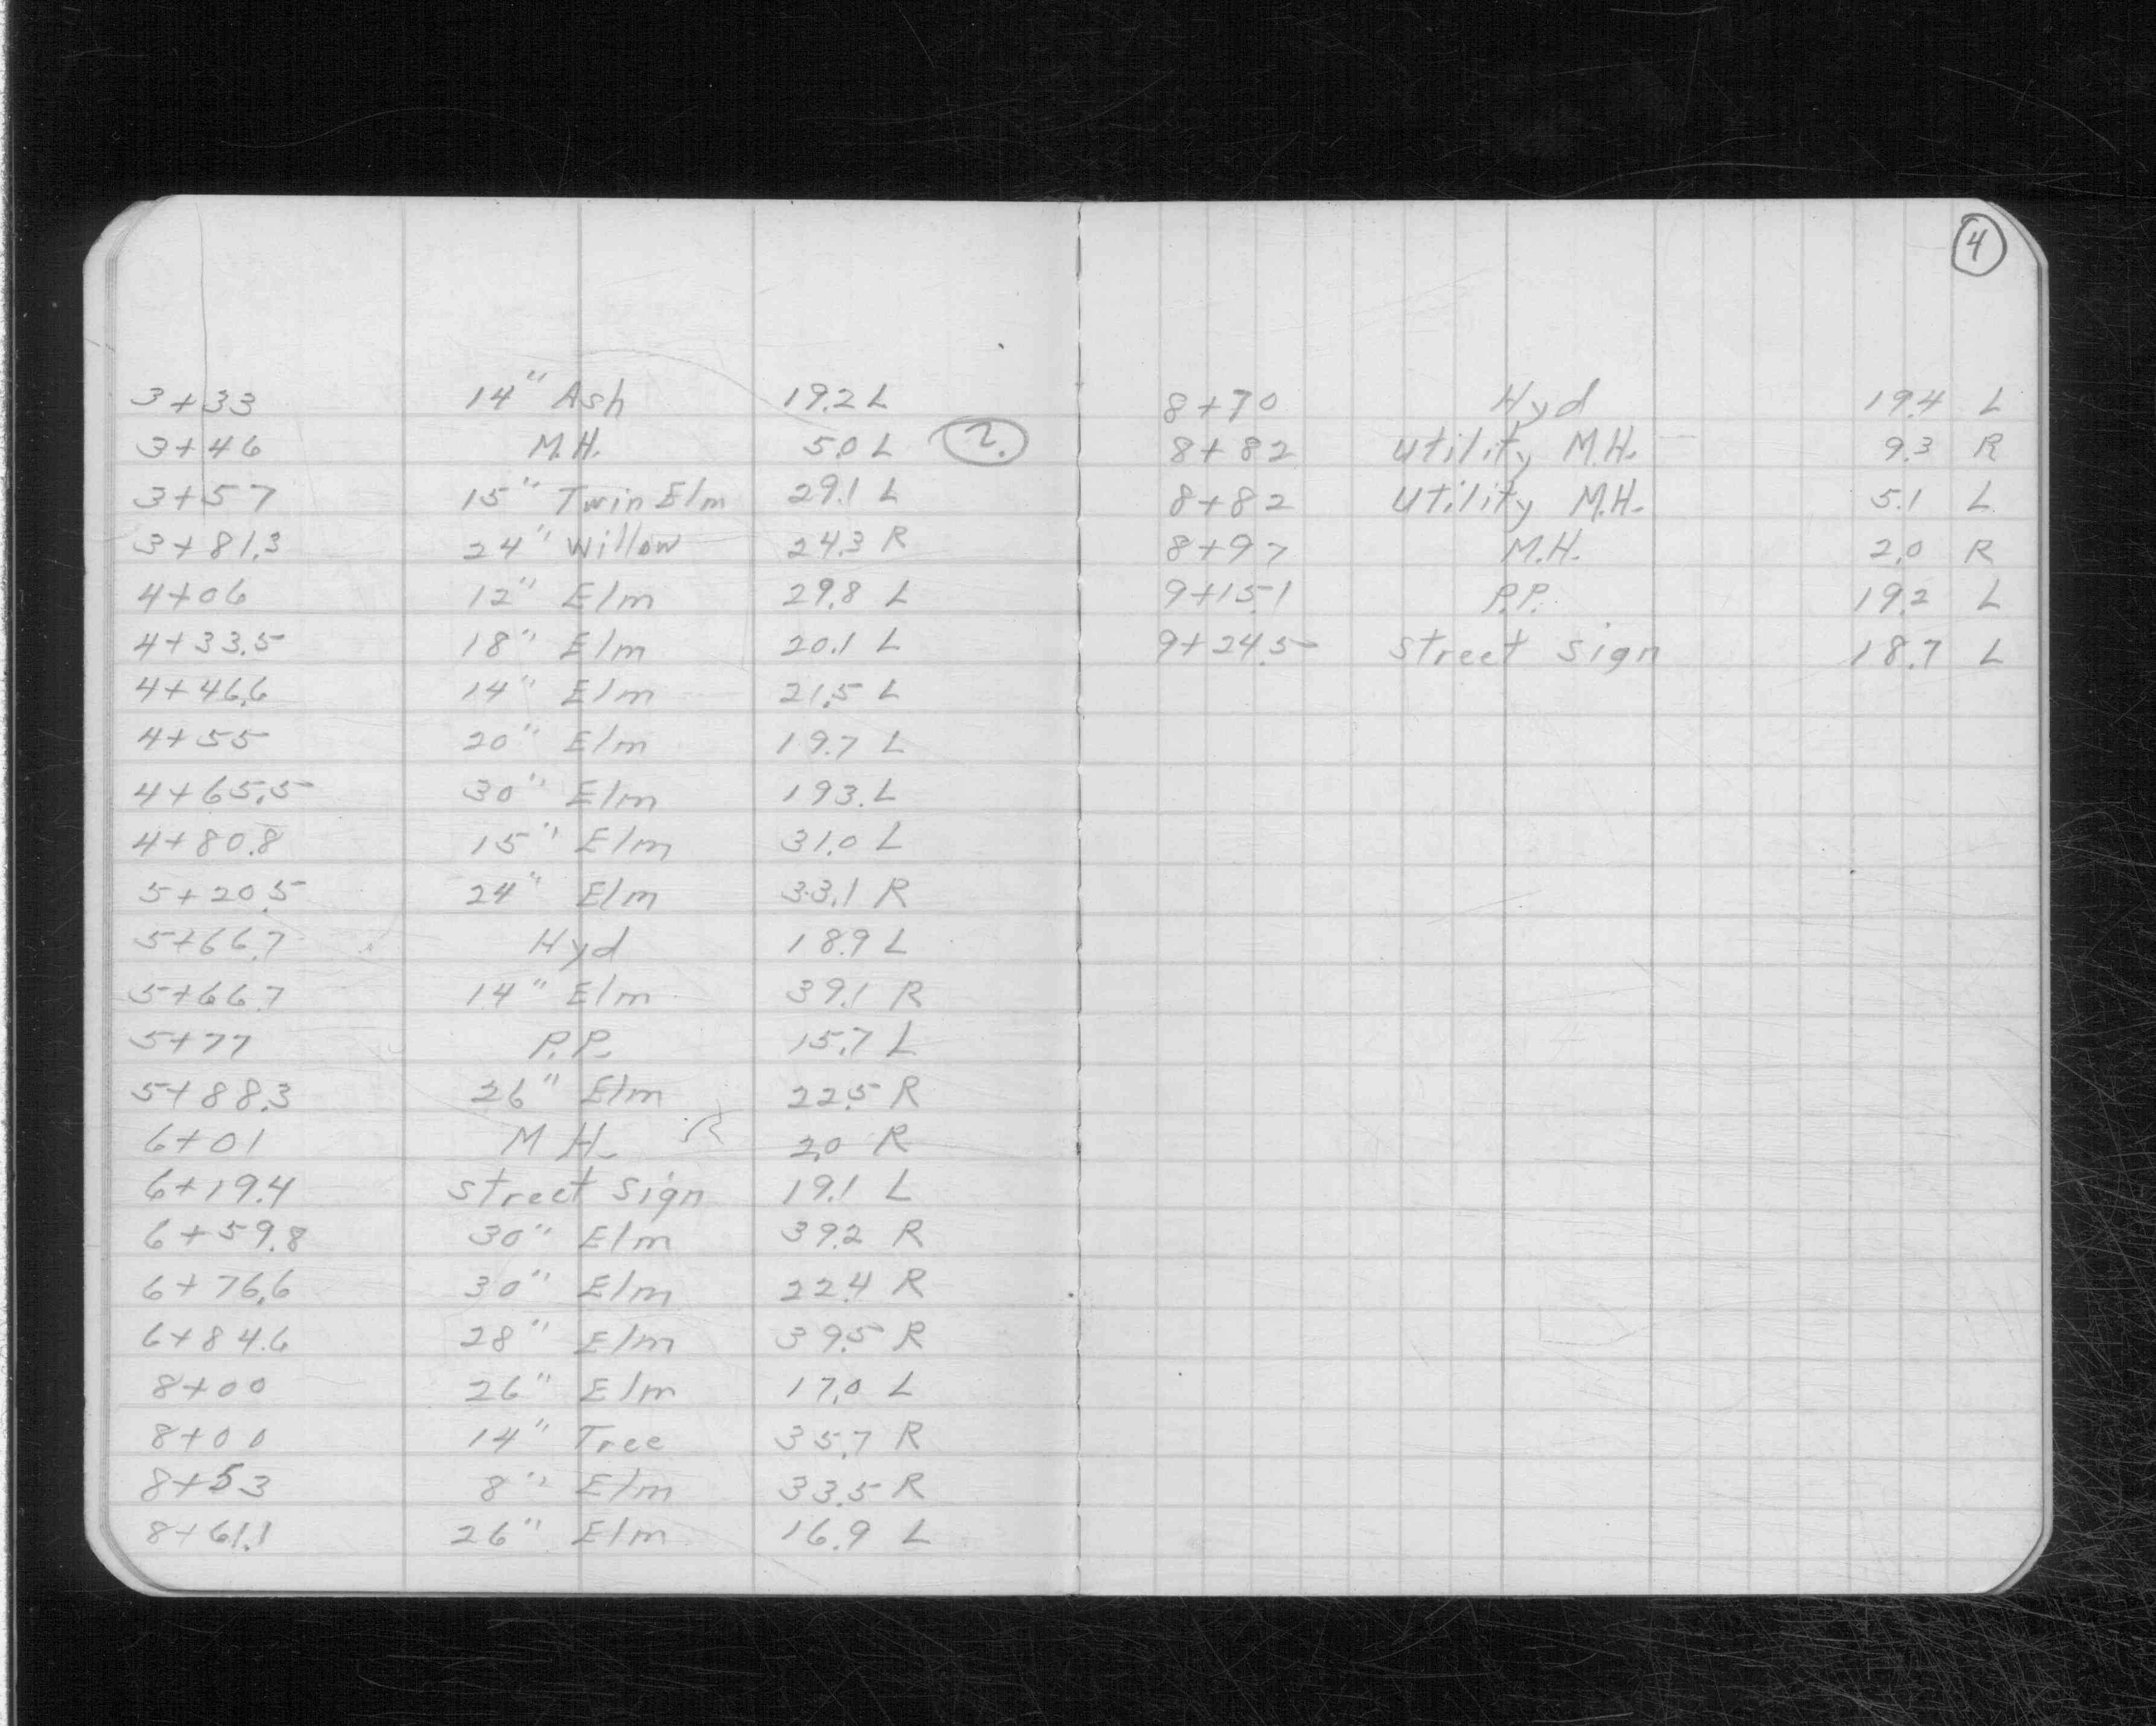 4
3+33 14" Ash 19.2 L
3+46 M.H. 5.0 L 2.
3+57 15" Twin Elm 29.1 L
3+81.3 24" Willow 24.3 R
4+06 12" Elm 29.8 L
4+33.5 18" Elm 20.1 L
4+46.6 14" Elm 21.5 L
4+55 20" Elm 19.7 L
4+65.5 30" Elm 193. L
4+80.8 15" Elm 31.0 L
5+20.5 24" Elm 33.1 R
5+66.7 Hyd 18.9 L
5+66.7 14" Elm 39.1 R
5+77 P.P. 15.7 L
5+88.3 26" Elm 22.5 R
6+01 M.H. 2.0 R
6+19.4 street sign 19.1 L
6+59.8 30" Elm 39.2 R
6+76.6 30" Elm 22.4 R
6+84.6 28" Elm 39.5 R
8+00 26" Elm 17.0 L
8+00 14" Tree 35.7 R
8+53 8" Elm 33.5 R
8+61.1 26" Elm 16.9 L
8+70 Hyd 19.4 L
8+82 utility M.H. 9.3 R
8+82 utility M.H. 5.1 L
8+97 M.H. 2.0 R
9+15.1 P.P. 19.2 L
9+24.5 street sign 18.7 L